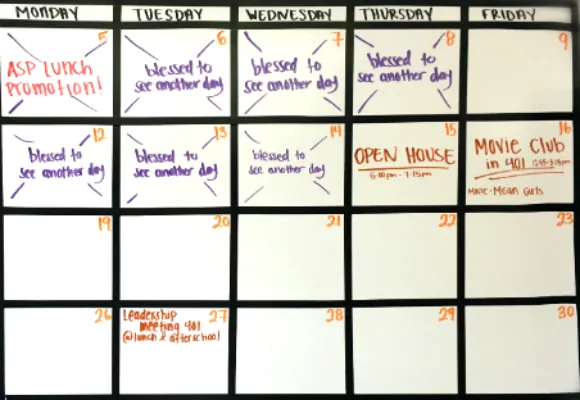 MONDAY TUESDAY WEDNESDAY THURSDAY FRIDAY
5
ASP LUNCH
PROMOTION!
6
blessed to
see another day
7
blessed to
see another day
8
blessed to
see another day
9
12
blessed to
see another day
13
blessed to
see another day
14
blessed to
see another day
15
OPEN HOUSE
6:00pm - 7:15pm
16
Movie Club
in 401
Movie - Mean Girls
19
20
21
22
23
26
27
Leadership
meeting 401
@lunch & afterschool
28
29
30